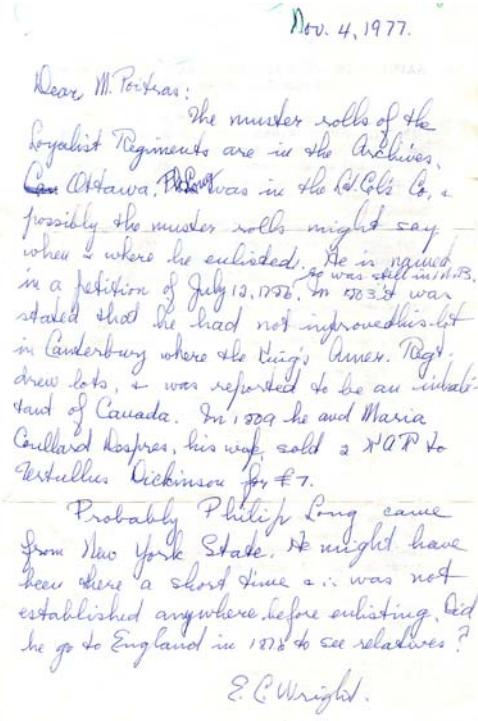 Nov. 4, 1977.
Dear M. Poitras:
The muster rolls of the
Loyalist Regiments are in the Archives,
Ottawa. Ph. Long was in the Lt. Col's Co., &
possibly the muster rolls might say
when & where he enlisted. He is named
so was still in N.B.
in a petition of July 12, 1786. In it was
stated that he had not improved his lot
in Canterbury where the King's Amer. Regt.
drew lots, & was reported to be an inhabi-
tant of Canada. In 1809 he and Maria
Coullard Despres, his wife, sold to
Tertullus Dickinson for £7.
Probably Philip Long came
from New York State. He might have
been there a short time & was not
established anywhere before enlisting. Did
he go to England in to see relatives?
E. C. Wright.